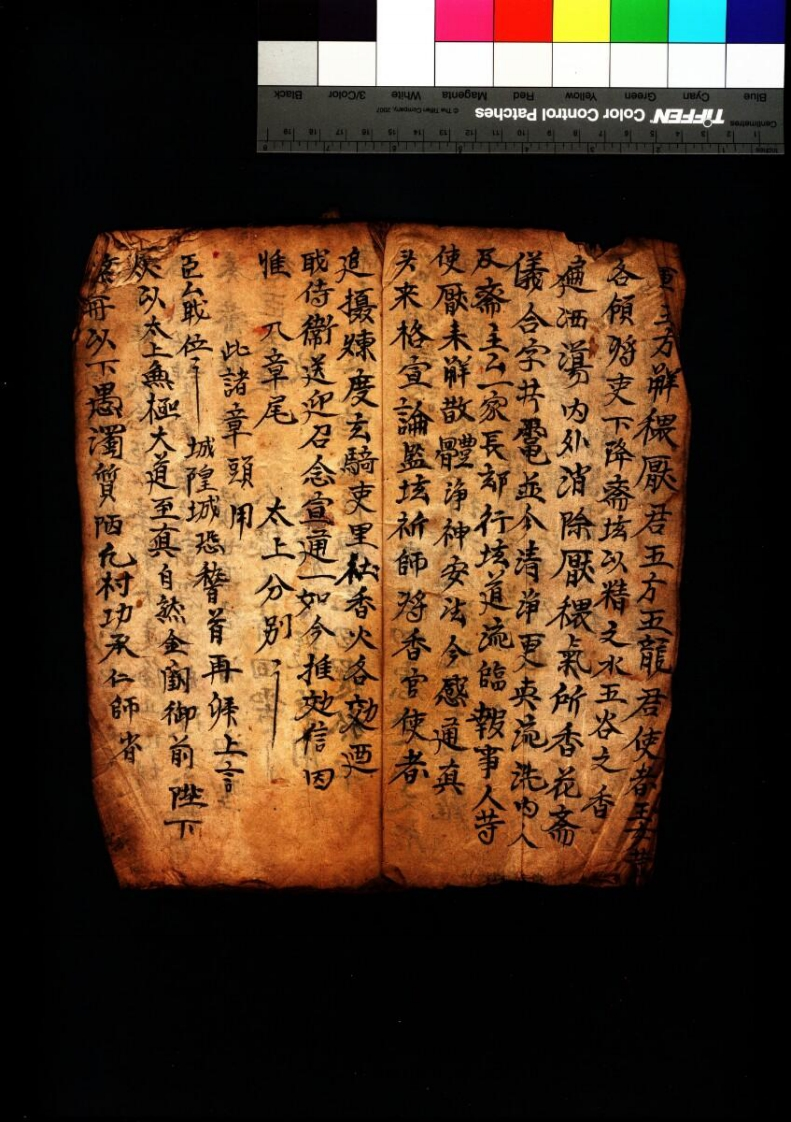 五方解穢厭君五方五龍君使者
各領將吏下降斋坛以精之水五谷之香
遍洒蕩内外消除厭穢氣所香花斋
儀合字廾電並令清净更爽流洗内人
及斋主厶一家長却行坛道流臨報事人等
使厭未解散體净神安法今感通真
来格宣論监坛祈師將香官使者
追攝煉度玄騎吏里社香火各効迺
戢侍衛送迎召念宣通一如今推効信因
惟 入章尾 太上分別
此諸章頭用
臣厶戢位 城隍城恐督首再 上言
以太上無極大道至真自然金闕御前 陛下
冊以下愚濁質陋凡村功承仁師省
TIFFEN Color Control Patches
© The Tiffen Company, 2007
Centimetres
Inches
Blue Cyan Green Yellow Red Magenta White 3/Color Black